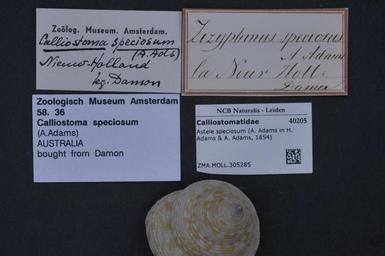 Zoölog. Museum. Amsterdam.
Calliostoma speciosum
(A. Ads)
Nieuw-Holland
Damon
Zizyphinus speciosus
A Adams
la Nouv Holl.
Damon
Zoologisch Museum Amsterdam
58. 36
Calliostoma speciosum
(A.Adams)
AUSTRALIA
bought from Damon
NCB Naturalis - Leiden
Calliostomatidae 40205
Astele speciosum (A. Adams in H.
Adams & A. Adams, 1854)
ZMA.MOLL.305285